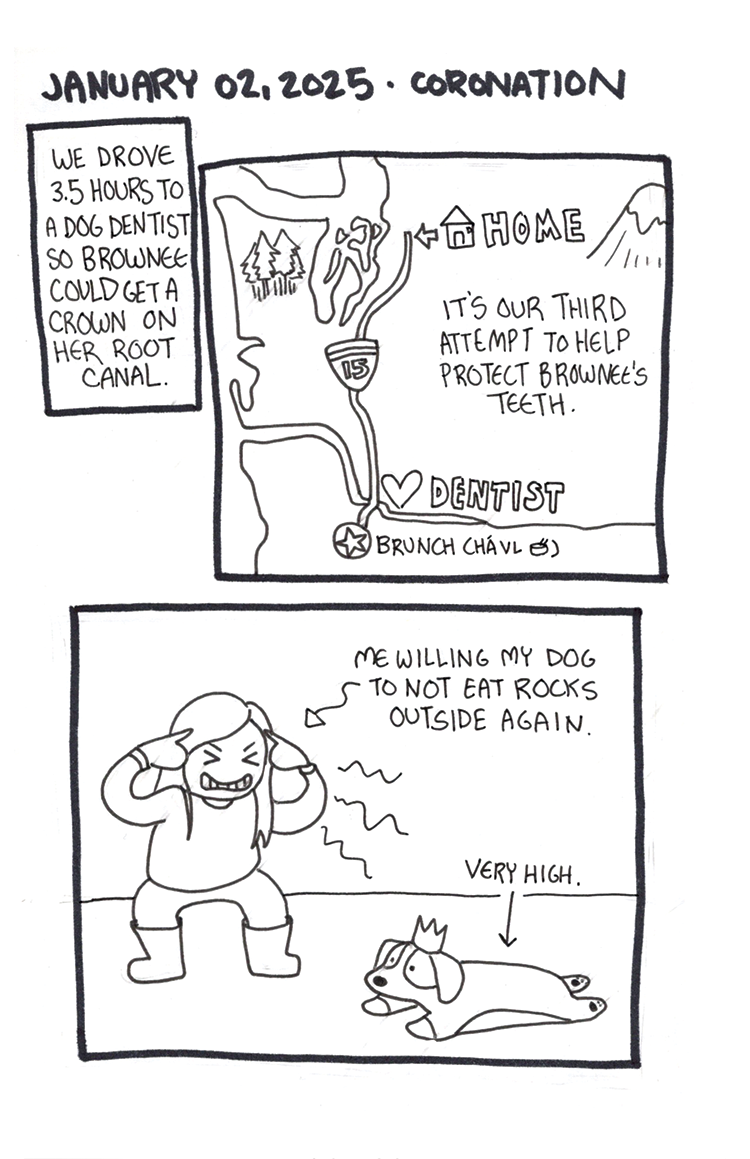 JANUARY 02, 2025 · CORONATION
WE DROVE
3.5 HOURS TO
A DOG DENTIST
SO BROWNEE
COULD GET A
CROWN ON
HER ROOT
CANAL.
HOME
IT'S OUR THIRD
ATTEMPT TO HELP
PROTECT BROWNEE'S
TEETH.
15
DENTIST
BRUNCH CHÁVL
ME WILLING MY DOG
TO NOT EAT ROCKS
OUTSIDE AGAIN.
VERY HIGH.